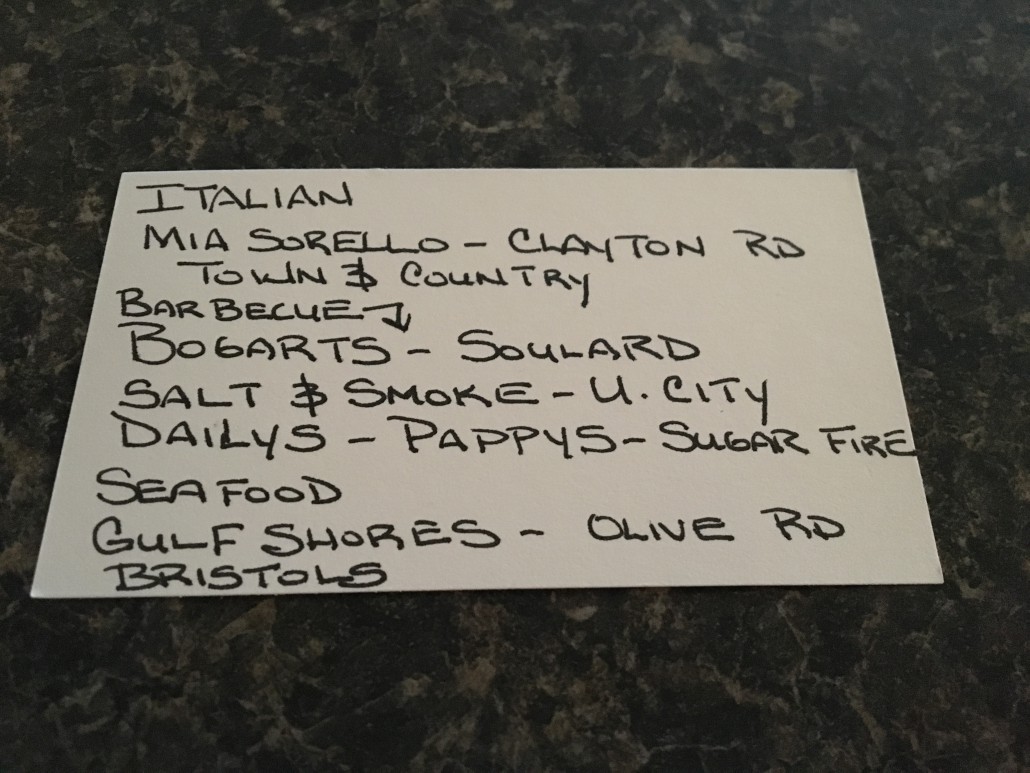 ITALIAN
MIA SORELLO - CLAYTON RD
TOWN & COUNTRY
BARBECUE
BOGARTS - SOULARD
SALT & SMOKE - U. CITY
DAILYS - PAPPYS - SUGAR FIRE
SEAFOOD
GULF SHORES - OLIVE RD
BRISTOLS